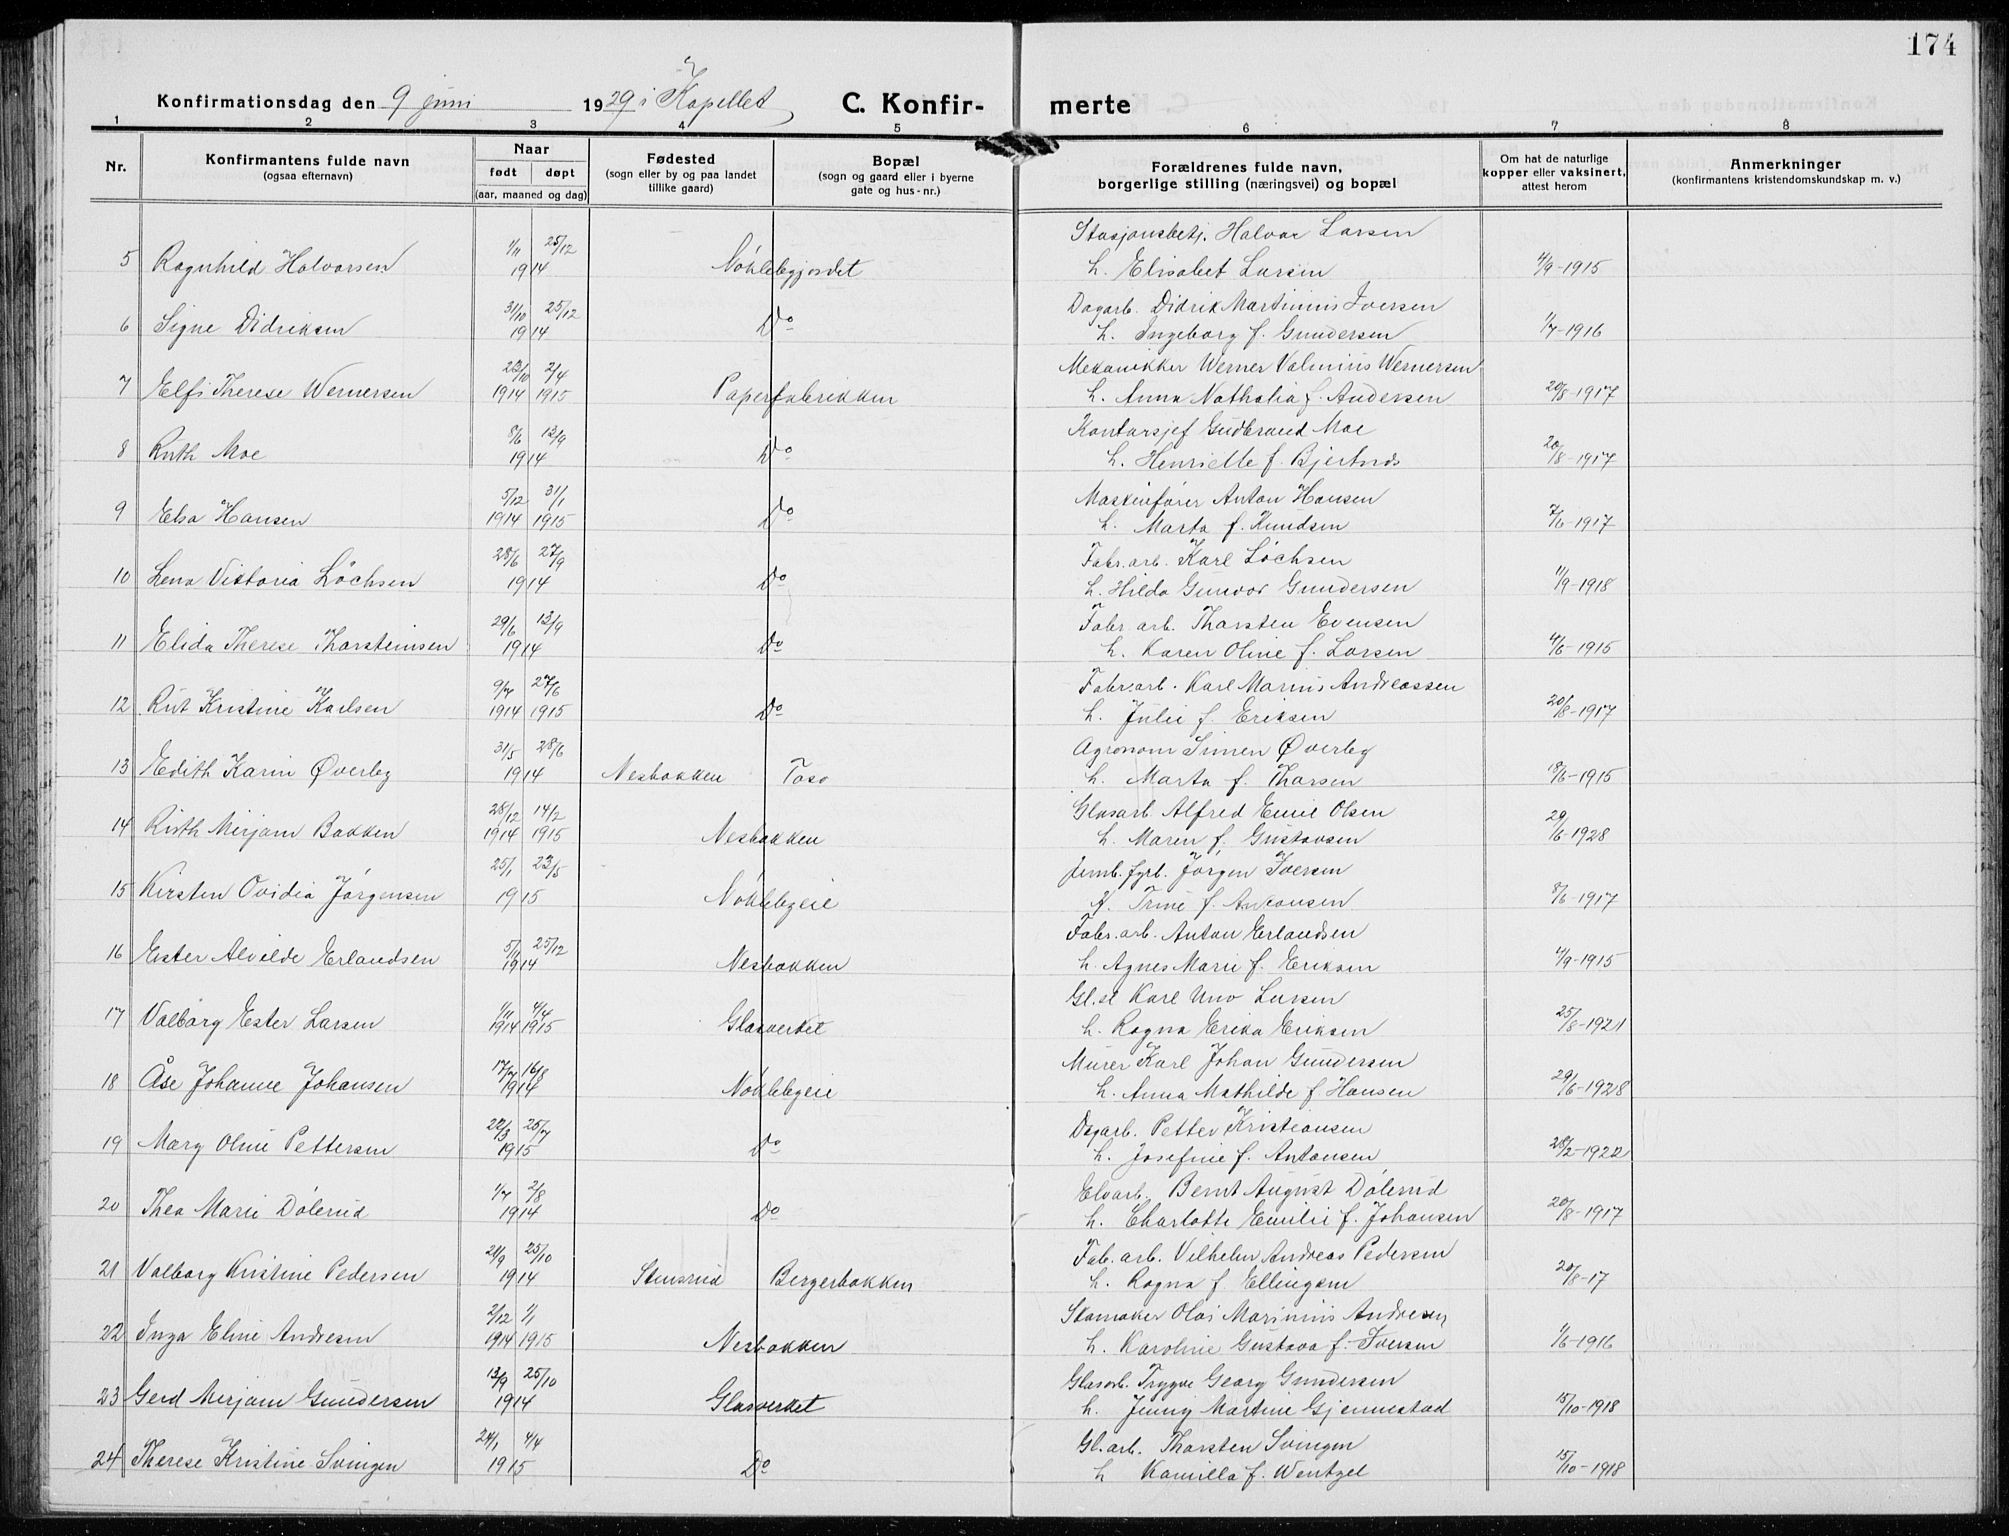 174
Konfirmationsdag den 9 juni 1929 i Kapellet C. Konfir- merte
1 2 3 4 5 6 7 8
Nr. Konfirmantens fulde navn (ogsaa efternavn) Naar født døpt (aar, maaned og dag) Fødested (sogn eller by og paa landet tillike gaard) Bopæl (sogn og gaard eller i byerne gate og hus-nr.) Forældrenes fulde navn, borgerlige stilling (næringsvei) og bopæl Om hat de naturlige kopper eller vaksinert, attest herom Anmerkninger (konfirmantens kristendomskundskap m. v.)
1/11 25/12 Stasjonsbetj. Halvor Larsen
5 Ragnhild Halvorsen 1914 Nøklebygjordet h. Elisabet Larsen 4/9-1915
31/10 25/12 Dagarb. Didrik Martinius Iversen
6 Signe Didriksen 1914 Do h. Ingeborg f. Gundersen 1/7-1916
22/10 2/4 Mekanikker Werner Valinius Wernersen
7 Elfi Therese Wernersen 1914 1915 Paperfabrikken h. Anna Nathalia f. Andersen 20/8-1917
8/6 13/9 Kontorsjef Gudbrand Moe
8 Ruth Moe 1914 Do h. Henriette f. Bjertnes 20/8-1917
5/12 31/1 Maskinfører Anton Hansen
9 Elsa Hansen 1914 1915 Do h. Marta f. Knudsen 7/6-1917
28/6 27/9 Fabr.arb. Karl Løchsen
10 Lena Viktoria Løchsen 1914 Do h. Hilda Gunvor Gundersen 11/9-1918
29/6 13/9 Fabr. arb. Thorsten Evensen
11 Elida Therese Thorsteinsen 1914 Do h. Karen Oline f. Larsen 4/6-1915
9/7 27/6 Fabr.arb. Karl Marius Andreassen
12 Rut Kristine Karlsen 1914 1915 Do h. Julie f. Eriksen 20/8-1917
31/5 28/6 Agronom Simen Øverby
13 Edith Karin Øverby 1914 Nesbakken Toso h. Marta f. Thorsen 18/6-1915
28/12 14/2 Glasarb. Alfred Emil Olsen
14 Ruth Mirjam Bakken 1914 1915 Nesbakken h. Maren f. Gustavsen 29/6-1928
25/1 23/5 Jernb. fyrb. Jørgen Iversen
15 Kirsten Ovidia Jørgensen 1915 Nøklebyeie h. Trine f. Antonsen 8/6-1917
5/11 25/12 Fabr.arb. Anton Erlandsen
16 Ester Alvilde Erlandsen 1914 Nesbakken h. Agnes Marie f. Eriksen 4/9-1915
1/11 4/4 Gl.sl Karl Uno Larsen
17 Valborg Ester Larsen 1914 1915 Glasverket h. Ragna Erika Eriksen 25/8-1921
17/7 16/8 Murer Karl Johan Gundersen
18 Åse Johanne Johansen 1914 Nøklebyeie h. Anna Mathilde f. Hansen 29/6-1928
22/3 25/7 Dagarb. Petter Kristiansen
19 Mary Oline Pettersen 1915 Do h. Josefine f. Antonsen 28/2-1922
1/7 2/8 Elvarb. Bernt August Dølerud
20 Thea Marie Dølerud 1914 Do h. Charlotte Emilie f. Johansen 20/8-1917
21/9 25/10 Fab. arb. Vilhelm Andreas Pedersen
21 Valborg Kristine Pedersen 1914 Stensrud Bergerbakken h. Ragna f. Ellingsen 20/8-17
2/12 1/1 Skomaker Olai Marinius Andresen
22 Inga Eline Andresen 1914 1915 Nesbakken h. Karoline Gustava f. Iversen 1/6-1916
13/9 25/10 Glasarb. Trygve Georg Gundersen
23 Gerd Mirjam Gundersen 1914 Glasverket h. Jenny Martine Gjennestad 15/10-1918
24/1 4/4 Gl.arb. Thorsten Svingen
24 Therese Kristine Svingen 1915 Do h Kamilla f. Wentzel 15/10-1918